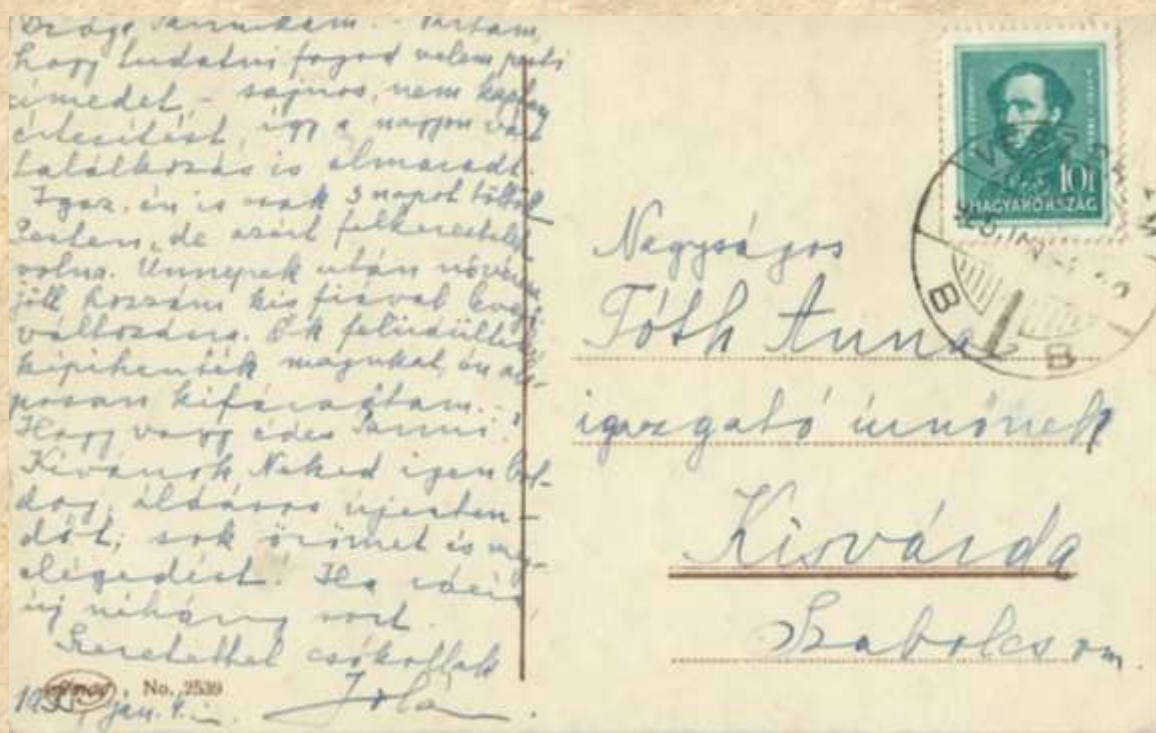 Drága Pannikám. - Vártam,
hogy tudatni fogod velem pesti
címedet, - sajnos, nem kaptam
értesítést, így a nagyon várt
találkozás is elmaradt.
Igaz, én is csak 3 napot töltök
Pesten, de azért felkerestelek
volna. Ünnepek után nővérem
jött hozzám kis fiával levegő-
változásra. Ők felüdültek
kipihenték magukat, én ala-
posan kifáradtam. -
Hogy vagy édes Panni?
Kivánok Neked igen bol-
dog, áldásos újeszten-
dőt, sok örömet és meg-
elégedést. Ha ráérsz,
írj néhány sort.
Szeretettel csókollak
Jola
jan. 4.
No. 2539
10f
MAGYARORSZÁG
B B
Nagyságos
Tóth Anna
igazgató úrnőnek
Kisvárda
Szabolcs vm.